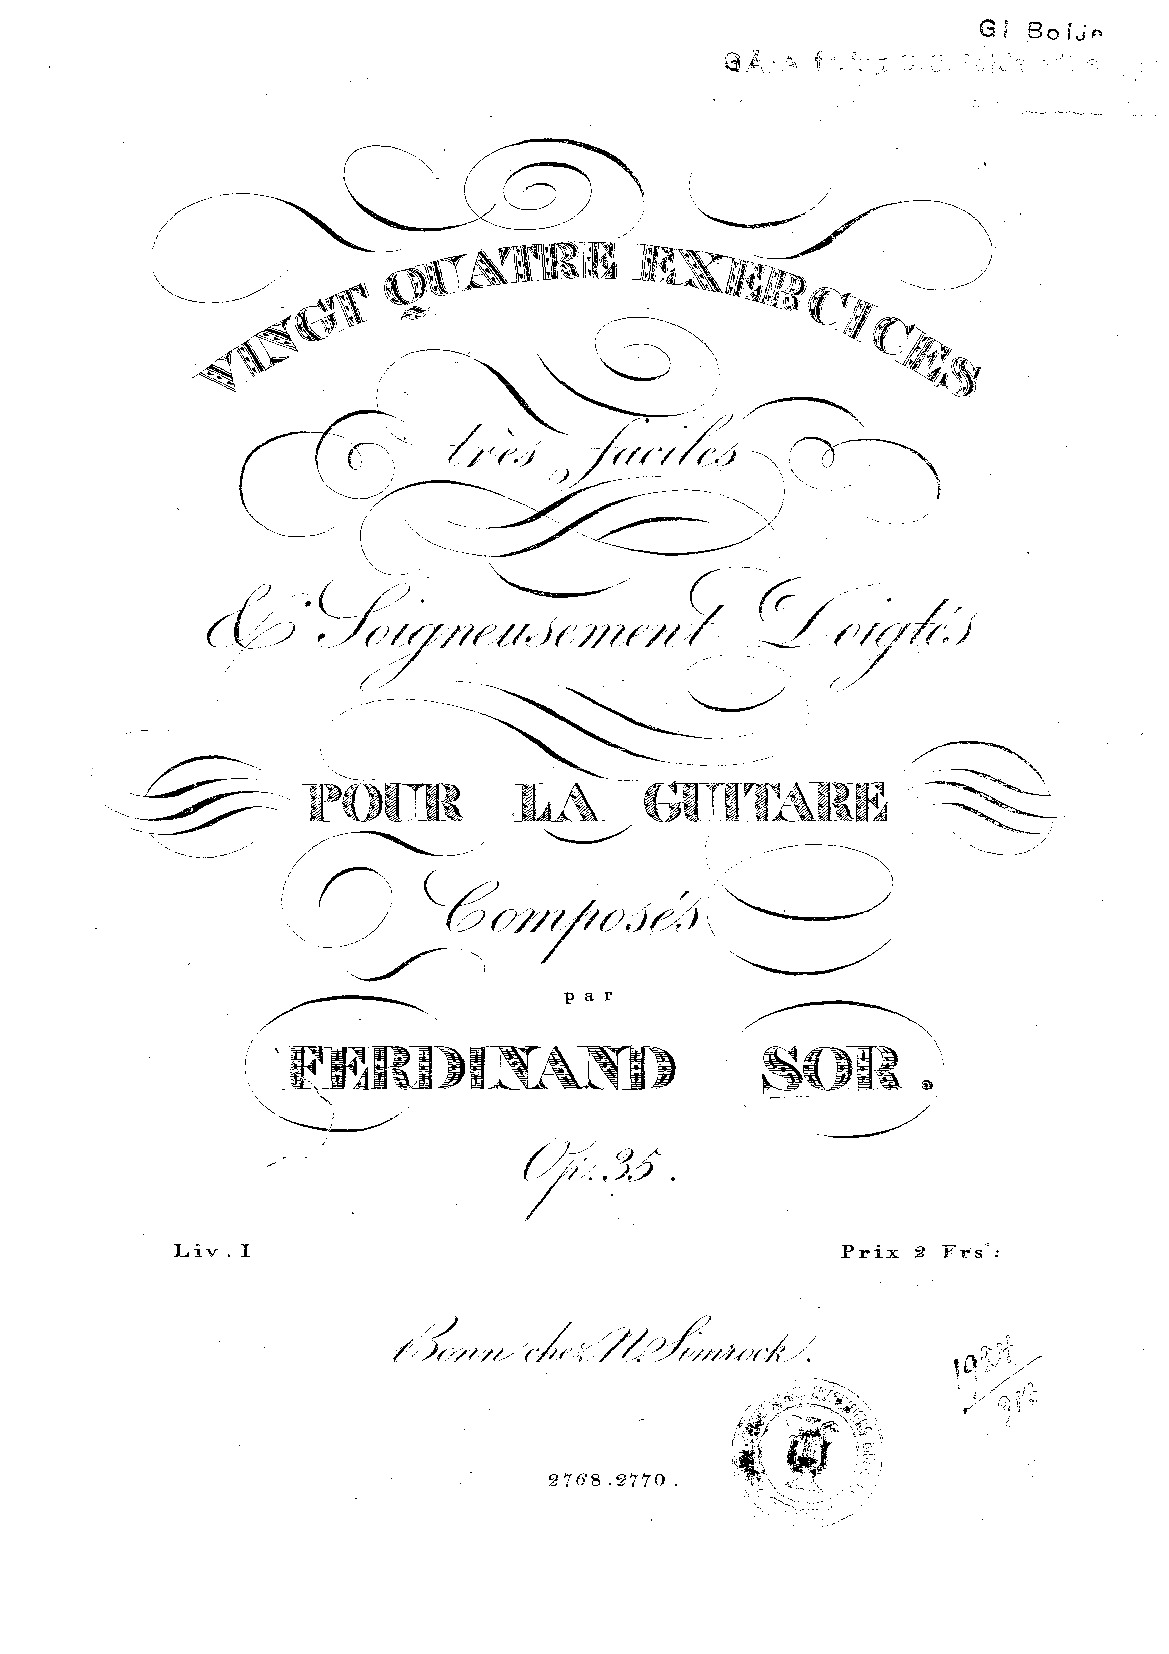 GI Boije
VINGT QUATRE EXERCICES
très faciles
& Soigneusement Doigtés
POUR LA GUITARE
Composés
par
FERDINAND SOR.
Op. 35.
Liv. I
Prix 2 Frs:
Bonn chez N. Simrock.
1924
2768.2770.